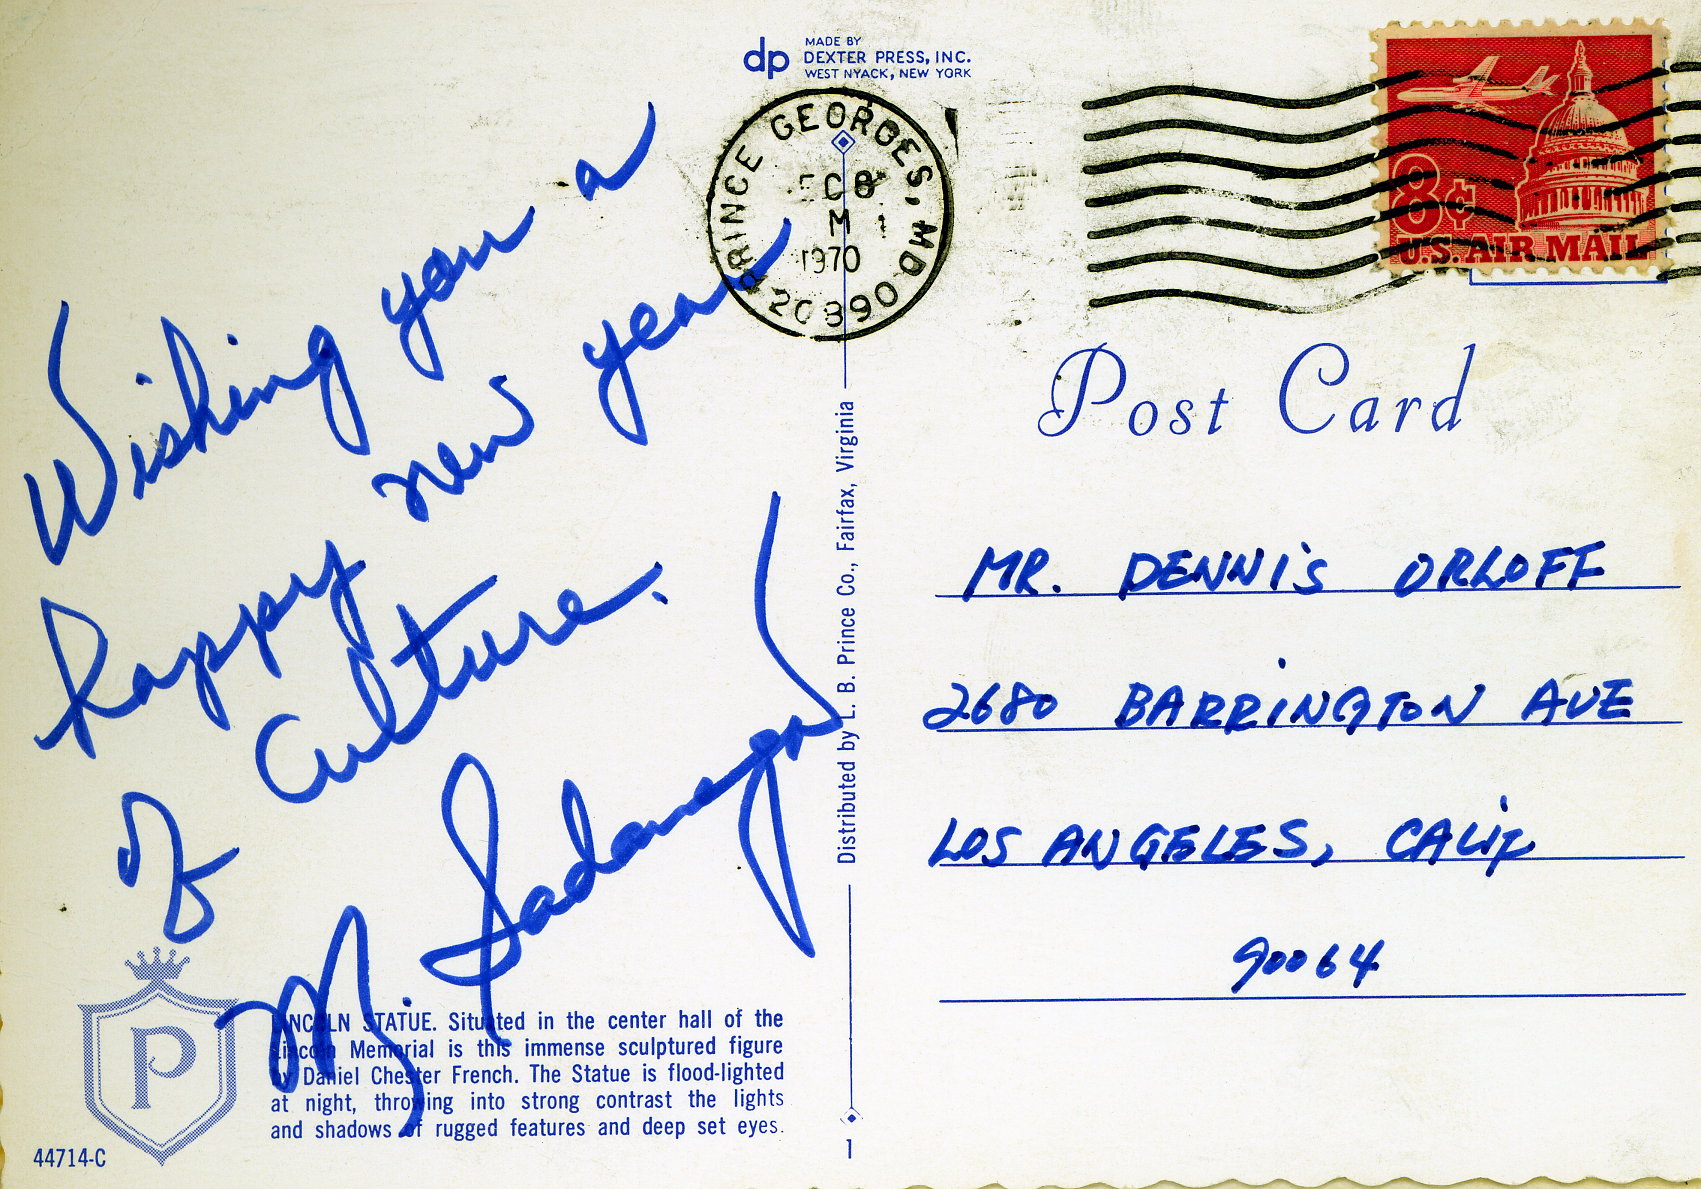 dp
MADE BY
DEXTER PRESS, INC.
WEST NYACK, NEW YORK
PRINCE GEORGES, MD
20890
EC 8
M
1970
8¢
U.S. AIR MAIL
Wishing you a
happy new year
of culture.
M. Sadanaga
Post Card
MR. DENNIS ORLOFF
2680 BARRINGTON AVE
LOS ANGELES, CALIF
90064
Distributed by L. B. Prince Co., Fairfax, Virginia
P
LINCOLN STATUE. Situated in the center hall of the
Lincoln Memorial is this immense sculptured figure
by Daniel Chester French. The Statue is flood-lighted
at night, throwing into strong contrast the lights
and shadows of rugged features and deep set eyes.
44714-C
1